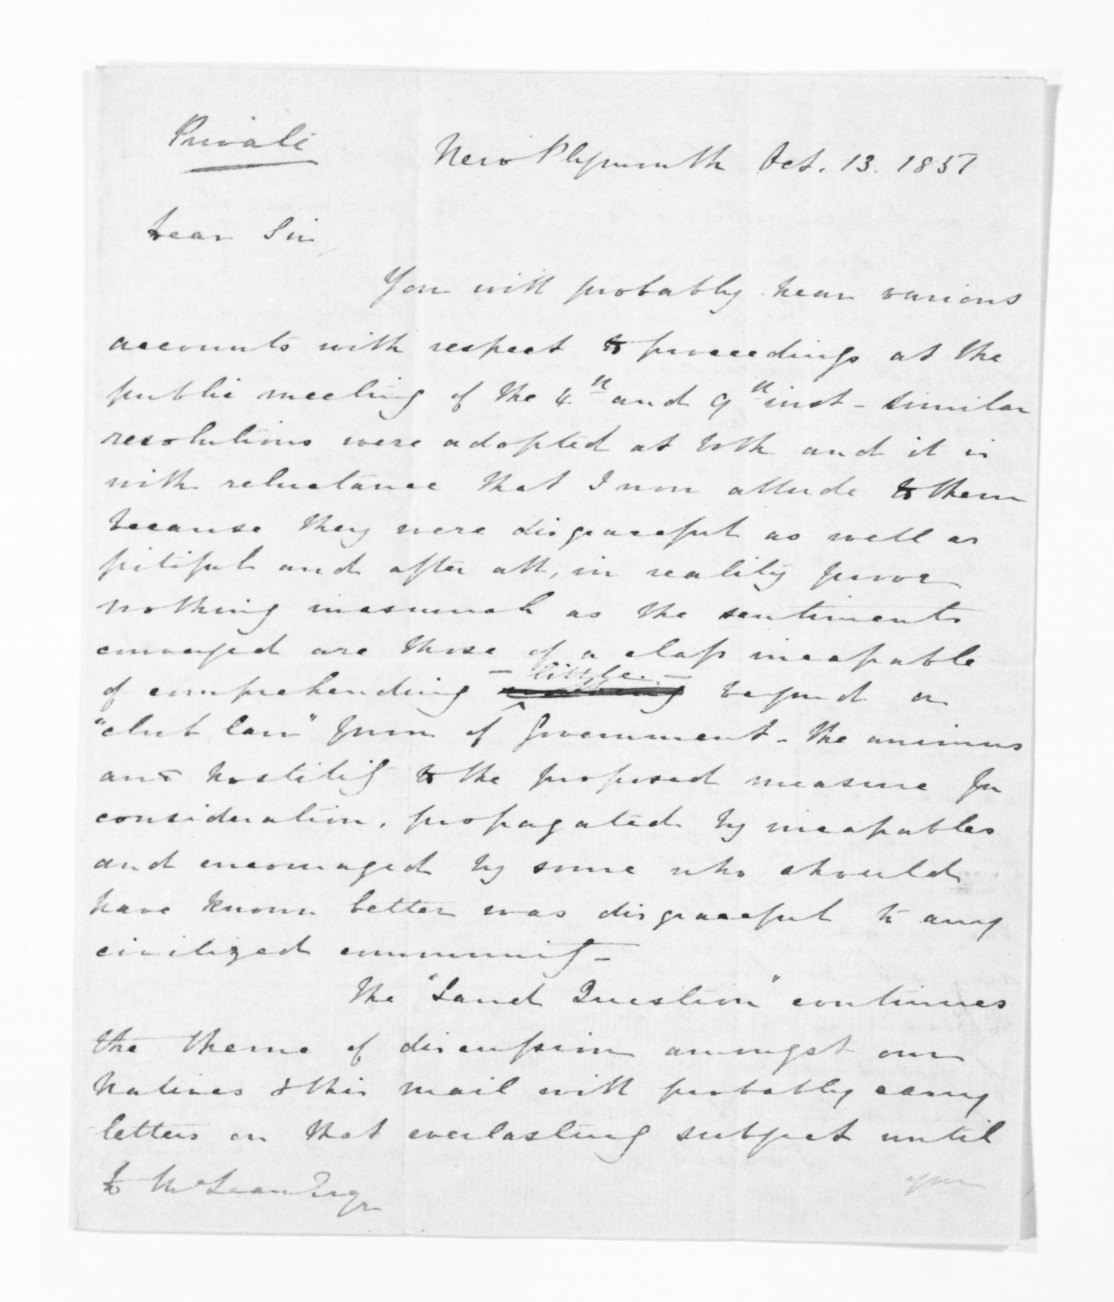 Private
New Plymouth Oct. 13. 1857
Dear Sir,
You will probably hear various
accounts with respect to proceedings at the
public meeting of the 4th and 9th inst - similar
resolutions were adopted at both and it is
with reluctance that I now allude to them
because they were disgraceful as well as
pitiful and after all, in reality prove
nothing inasmuch as the sentiments
conveyed are those of a class incapable
of comprehending - little - beyond a
"club law" form of Government - The animus
and hostility to the proposed measure for
consideration, propagated by incapables
and encouraged by some who should
have known better was disgraceful to any
civilized community -
The "Land Question" continues
the theme of discussion amongst our
Natives & this mail will probably carry
letters on that everlasting subject until
D McLean Esqr
you